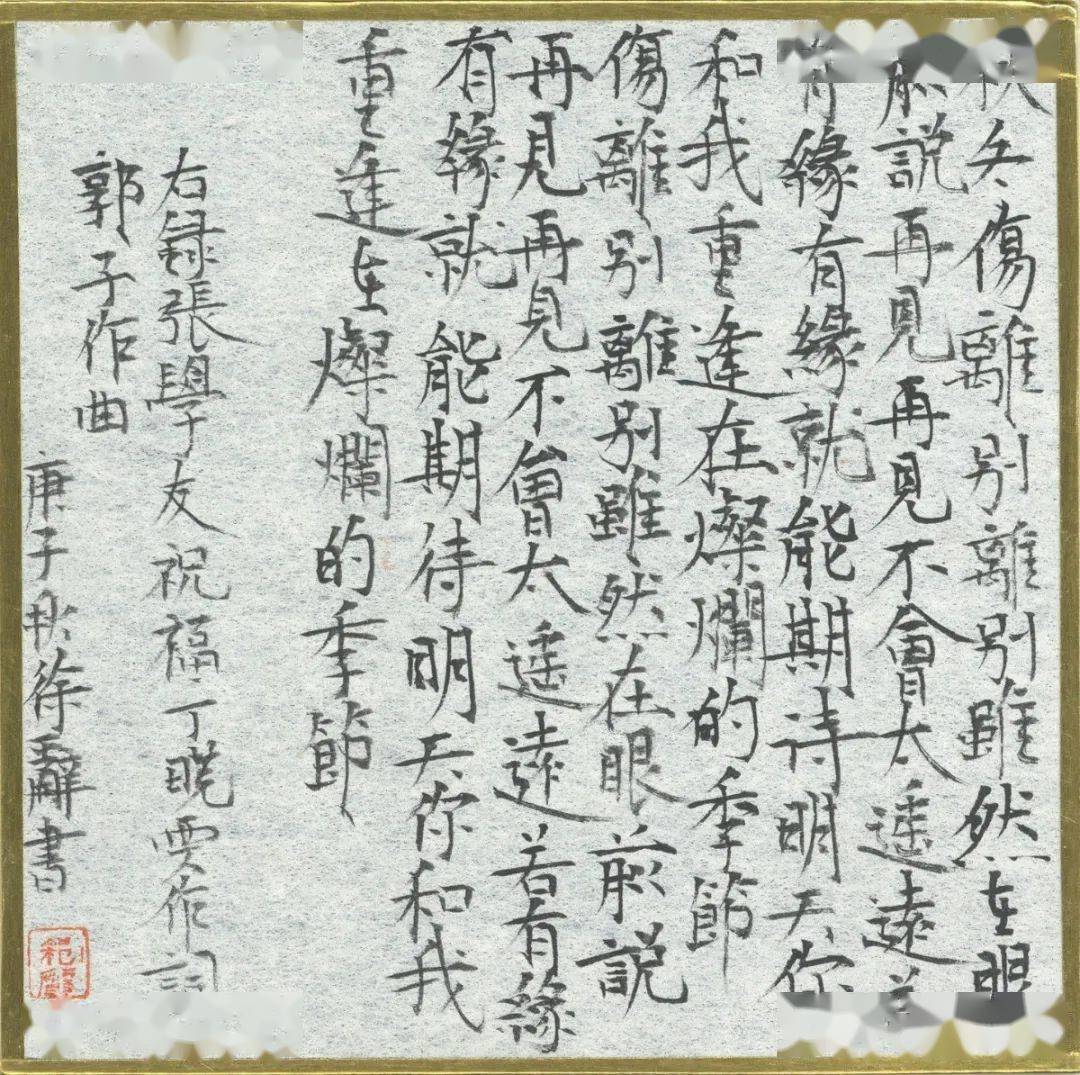 冬傷離別離別雖然在眼
前説再見再見不會太遙遠若
有緣有緣就能期待明天你
和我重逢在燦爛的季節
傷離別離別雖然在眼前説
再見再見不會太遙遠若有緣
有緣就能期待明天你和我
重逢在燦爛的季節
右録張學友祝福丁晓雯作詞
郭子作曲
庚子秋徐書